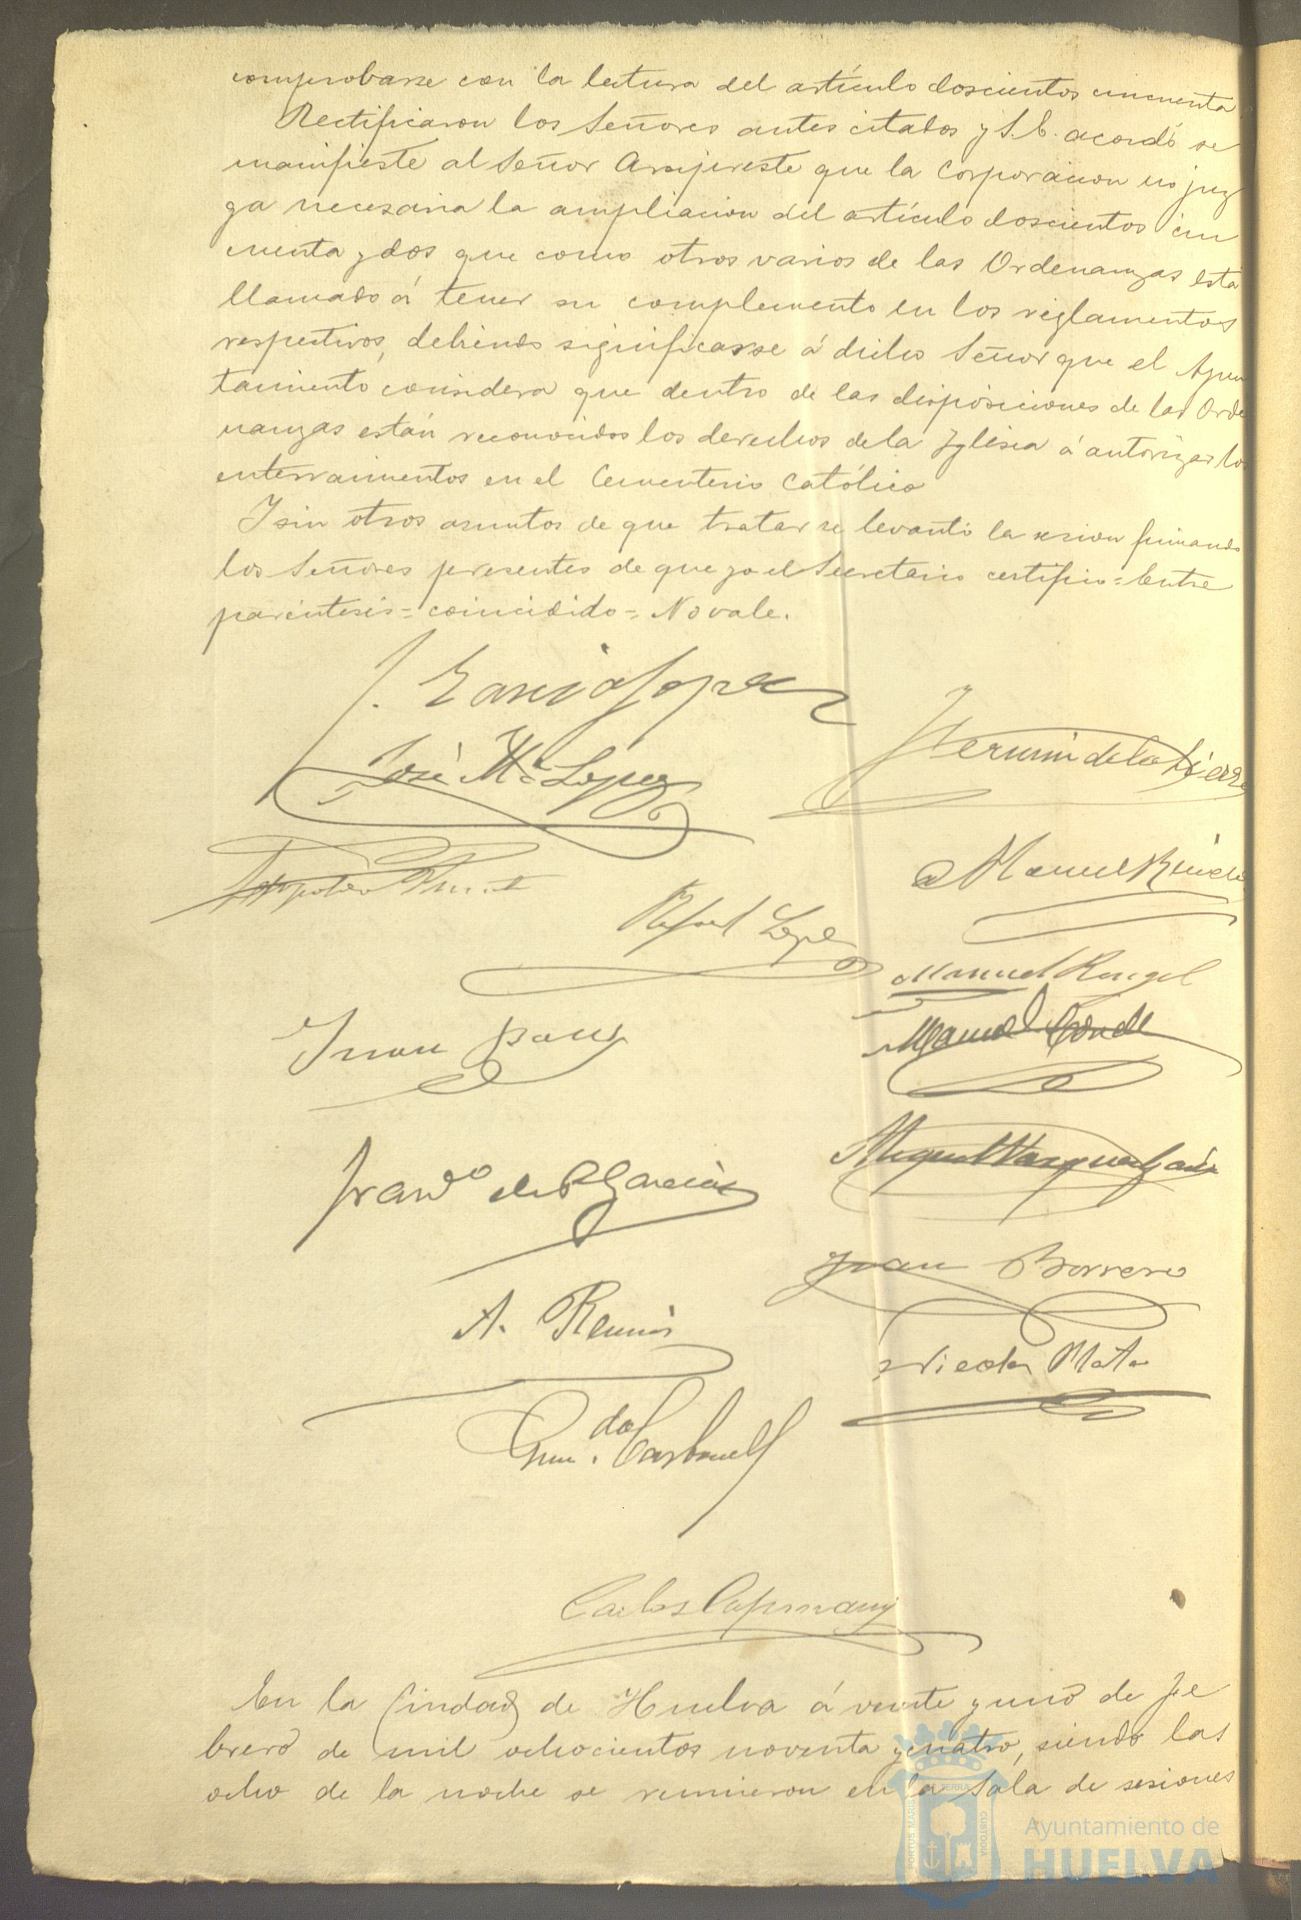 comprobarse con la lectura del artículo doscientos cincuenta
Rectificaron los Señores antes citados y S. E. acordó se
manifieste al Señor Arcipreste que la Corporacion no juz
ga necesaria la ampliacion del artículo doscientos cin
cuenta y dos que como otros varios de las Ordenanzas está
llamado á tener su complemento en los reglamentos
respectivos, debiendo significarse á dicho Señor que el Ayun
tamiento considera que dentro de las disposiciones de las Orde
nanzas están reconocidos los derechos de la Iglesia á autorizar los
enterramientos en el Cementerio Católico
Y sin otros asuntos de que tratar se levantó la sesion firmando
los Señores presentes de que yo el Secretario certifico = Entre
paréntesis = coincidido = No vale.
J. Garcia Lopez
José Mª Lopez
Fermin de la Sierra
Manuel
Rafael Lopez
Manuel Rengel
Juan
Manuel Conde
Miguel Vazquez
Franco de P Garcia
Juan Borrero
A.
Nicolas Mata
Gum.do Carbonell
Carlos Capmany
En la Ciudad de Huelva á veinte y uno de Fe
brero de mil ochocientos noventa y cuatro, siendo las
ocho de la noche se reunieron en la Sala de sesiones
PORTUS MARIS ET TERRÆ CUSTODIA
Ayuntamiento de
HUELVA